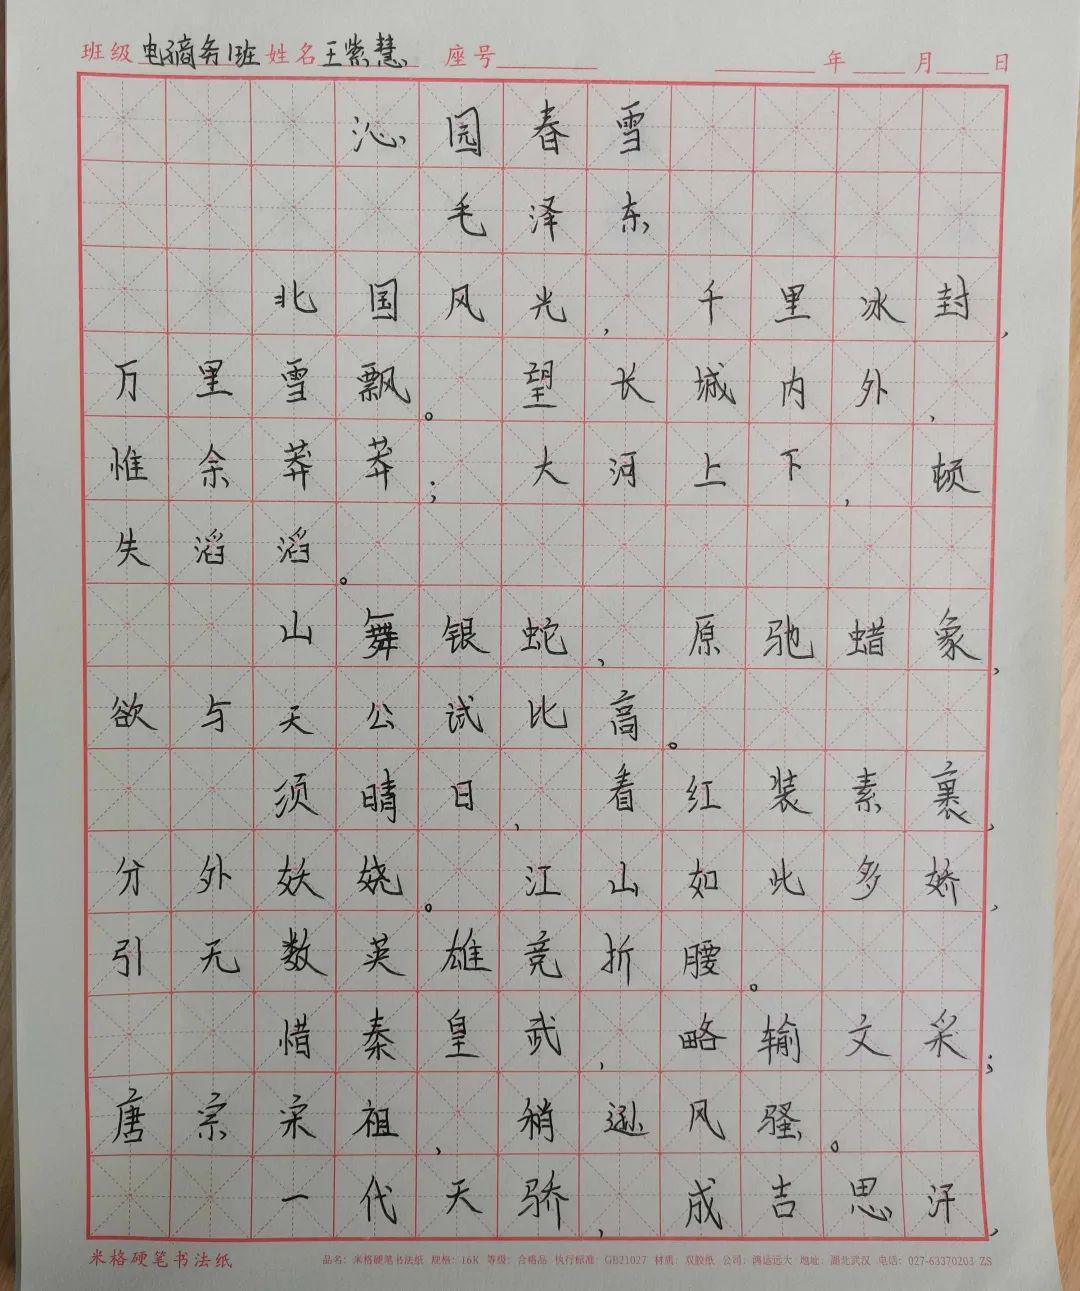 班级 电子商务1班 姓名 王紫慧 座号 年 月 日
沁园春雪
毛泽东
北国风光，千里冰封，
万里雪飘。望长城内外，
惟余莽莽；大河上下，顿
失滔滔。
山舞银蛇，原驰蜡象，
欲与天公试比高。
须晴日，看红装素裹，
分外妖娆。江山如此多娇，
引无数英雄竞折腰。
惜秦皇武，略输文采；
唐宗宋祖，稍逊风骚。
一代天骄，成吉思汗，
米格硬笔书法纸 品名：米格硬笔书法纸 规格：16K 等级：合格品 执行标准：GB21027 材质：双胶纸 公司：鸿运远大 地址：湖北武汉 电话：027-63370203 ZS